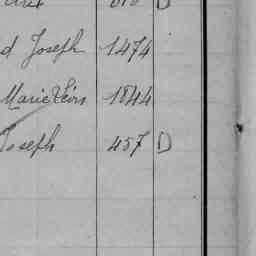 d Joseph 1474
Marie Léon 1844
Joseph 457 D